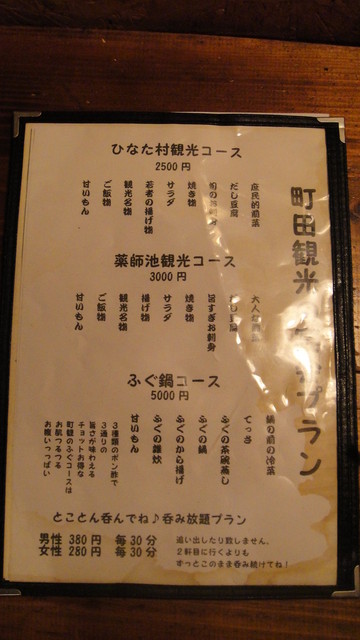 町田観光 プラン
ひなた村観光コース
2500円
庶民的前菜
だし豆腐
旬のお刺身
焼き物
サラダ
若者の揚げ物
観光名物
ご飯物
甘いもん
薬師池観光コース
3000円
大人な前菜
だし豆腐
旨すぎお刺身
焼き物
サラダ
揚げ物
観光名物
ご飯物
甘いもん
ふぐ鍋コース
5000円
鍋の前の冷菜
てっさ
ふぐの茶碗蒸し
ふぐの鍋
ふぐのから揚げ
ふぐの雑炊
甘いもん
3種類のポン酢で
3通りの
旨さが味わえる
チョットお得な
町観のふぐコースは
お肌つるつる
お腹いっぱい
とことん呑んでね♪呑み放題プラン
男性 380円 毎30分
女性 280円 毎30分
追い出したり致しません。
2軒目に行くよりも
ずっとこのまま呑み続けてね!